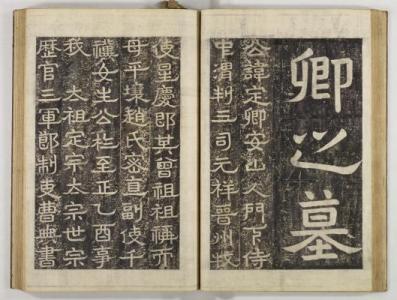 卿之墓
公諱定卿安山人門下侍
中渭判三司元祥晉州牧
使星慶卽其曾祖祖禰而
母平壤趙氏密直副使千
禩女生公於至正乙酉事
我 太祖定宗太宗世宗
歷官三軍節制吏曹典書